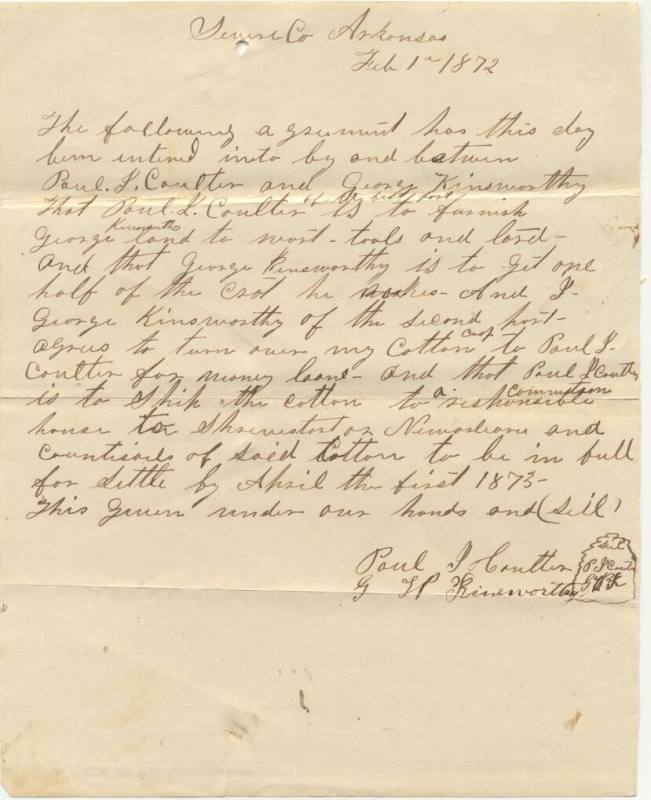 Sevire Co Arkansas
Feb 1st 1872
The following agreement has this day
been intered into by and between
Paul. J. Coulter and George Kinsworthy
that Paul. J. Coulter of the first part is to furnish
George Kinsworthy land to work - tools and land -
and that George Kinsworthy is to get one
half of the crot he makes - And I -
George Kinsworthy of the second part -
agrees to turn over my Cotton crop to Paul J -
Coulter for money loane - and that Paul J Coulter
is to Ship the cotton to a responsible commetson
house to Shreveport or Neworleans and
of said Cotton to be in full
for settle by April the first 1873 -
This Given under our hands and (Sell)
Paul J Coulter
G W Kinsworthy
Sell
P J Coulter
G W K